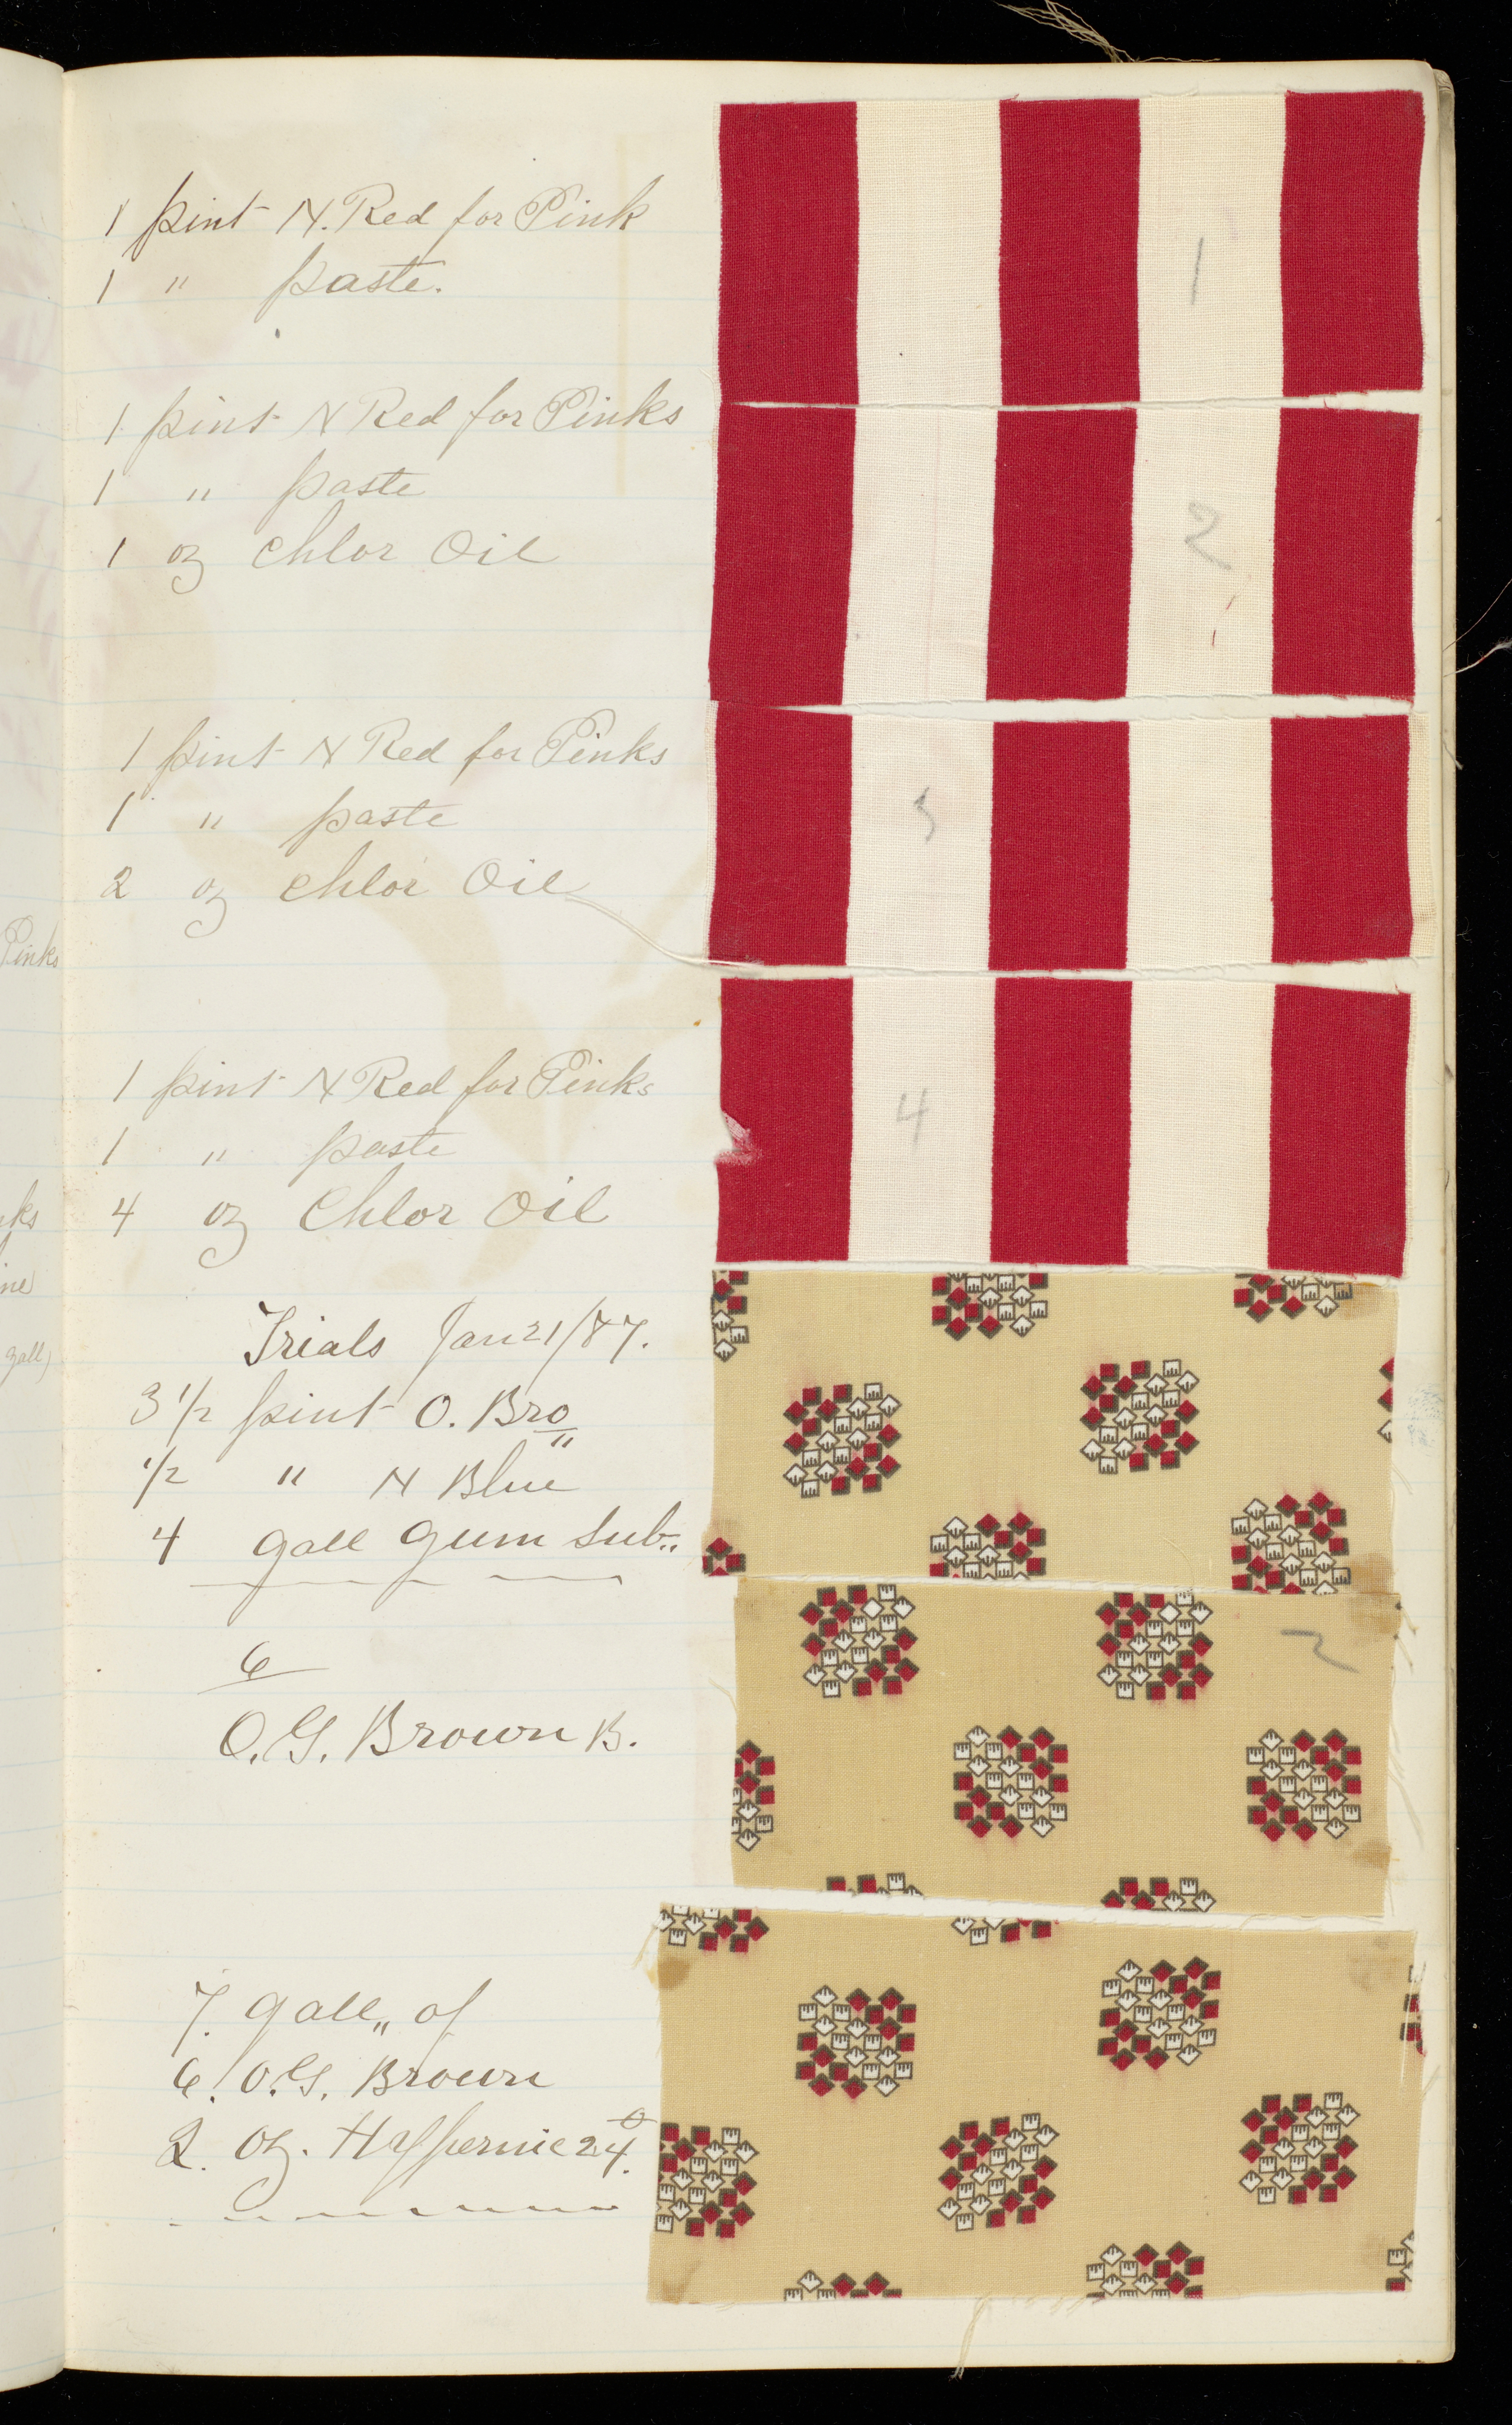 1 pint N. Red for Pink
1 " paste.
1
1 pint N Red for Pinks
1 " paste
1 oz Chlor Oil
2
1 pint N Red for Pinks
1 " paste
2 oz Chlor Oil
3
Pinks
1 pint N Red for Pinks
1 " paste
4 oz Chlor Oil
4
Trials Jan 21/87.
3 1/2 pint O. Bro"
1/2 " N Blue
4 gall gum sub"
2
6
O.G. Brown B.
7. gall" of
6. O.G. Brown
2. oz.